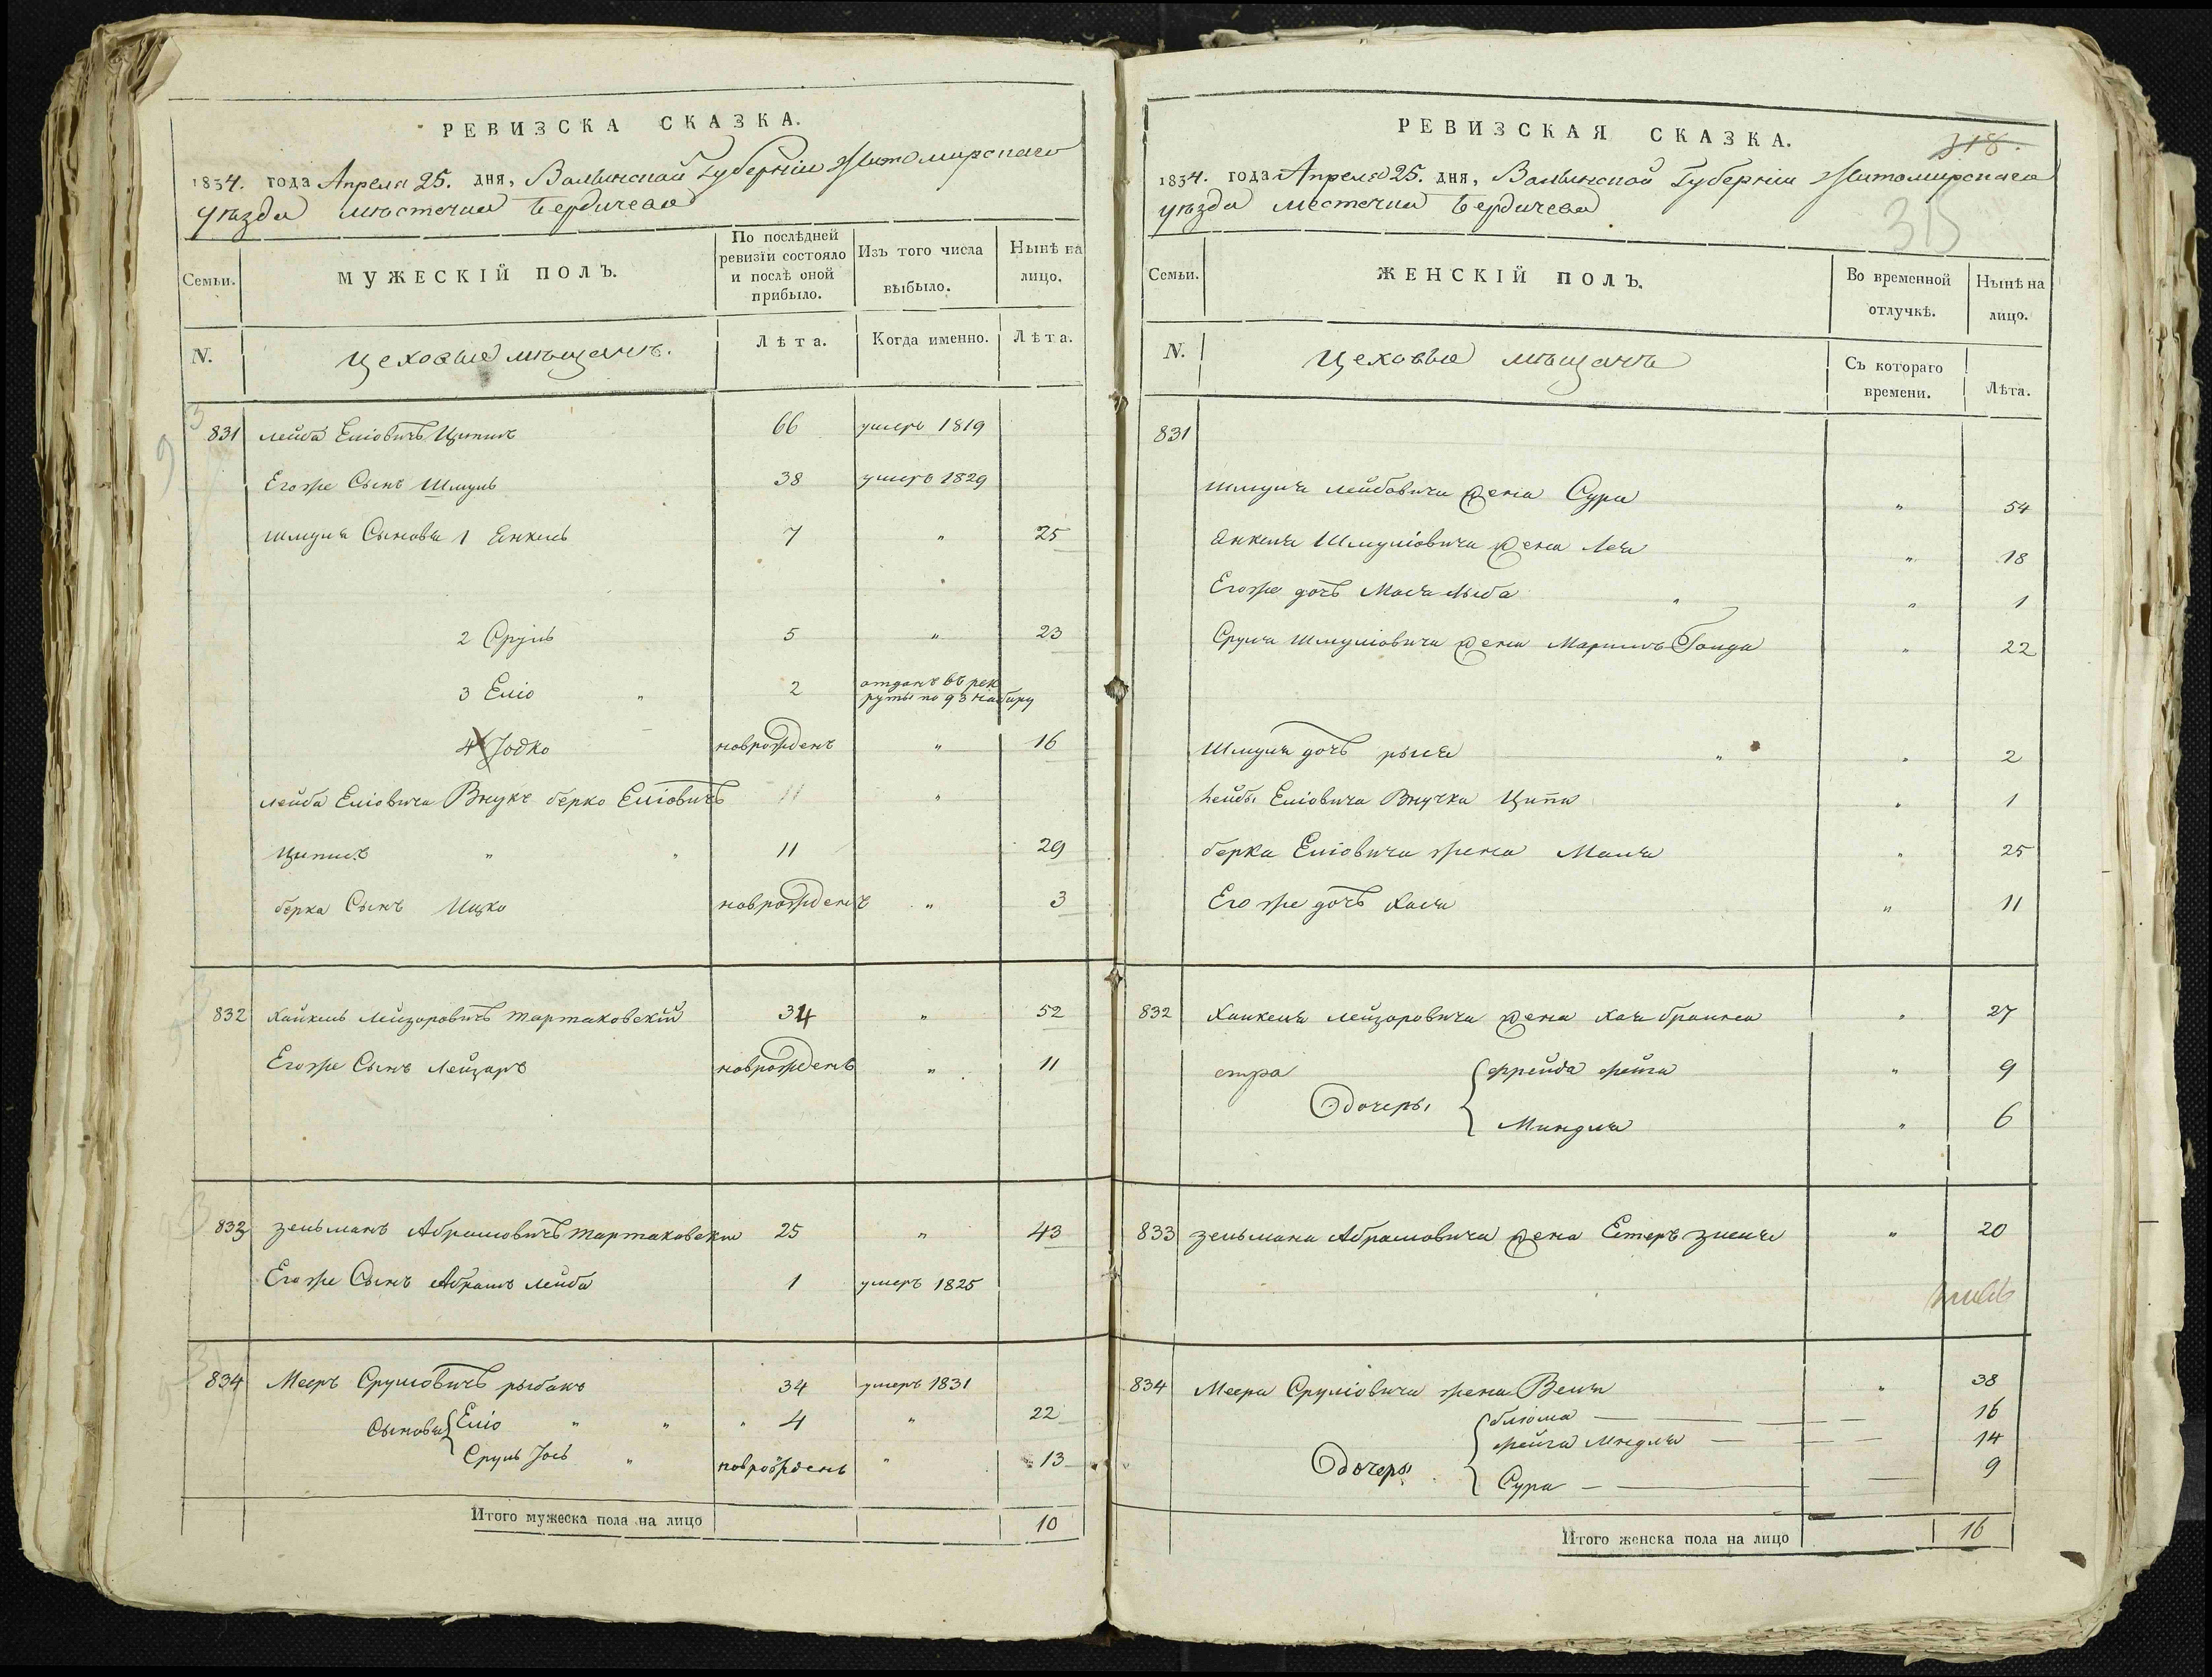 РЕВИЗСКА СКАЗКА.
1834. года Апреля 25. дня, Волынской Губерніи Житомирскаго
уѣзда мѣстечка Бердичева
Семьи.
МУЖЕСКІЙ ПОЛЪ.
По послѣдней ревизіи состояло и послѣ оной прибыло.
Изъ того числа выбыло.
Нынѣ на лицо.
N.
Цеховые мѣщанъ.
Лѣта.
Когда именно.
Лѣта.
831 Лейба Еліовичъ Ципинъ 66 умеръ 1819
Егоже Сынъ Шмуль 38 умеръ 1829
Шмуля Сыновья 1 Янкель 7 " 25
2 Сруль 5 " 23
3 Еліо " 2 отданъ въ рек
руты по 93 набору
4 Іодко новрожденъ " 16
Лейба Еліовича Внукъ берко Еліовичъ 11 "
Ципинъ " " 11 29
берка Сынъ Ицко новрожденъ " 3
832 Хайкель Лейзоровичъ Тартаковскій 34 " 52
Егоже Сынъ Лейзаръ новрожденъ " 11
833 Зельманъ Абрамовичъ Тартаковскій 25 " 43
Егоже Сынъ Абрамъ Лейба 1 умеръ 1825
834 Мееръ Сруліовичъ рыбакъ 34 умеръ 1831
Сыновья Еліо " " " 4 " 22
Сруль Іось " новрожденъ " 13
Итого мужеска пола на лицо 10
РЕВИЗСКАЯ СКАЗКА.
318.
315
1834. года Апреля 25. дня, Волынской Губерніи Житомирскаго
уѣзда местечка Бердичева
Семьи.
ЖЕНСКІЙ ПОЛЪ.
Во временной отлучкѣ.
Нынѣ на лицо.
N.
Цеховые мѣщанъ
Съ котораго времени.
Лѣта.
831
Шмуля Лейбовича жена Сура " 54
Янкеля Шмуліовича жена Лея " 18
Егоже дочь " 1
Сруля Шмуліовича жена " 22
Шмуля дочь " " 2
Лейбы Еліовича Внучка Ципа " 1
берка Еліовича жена Маля " 25
Егоже дочь Хася " 11
832 Хайкеля Лейзоровича жена Хая брайна " 27
дочеры фрейда фейга " 9
Миндля " 6
833 Зельмана Абрамовича жена Естеръ " 20
834 Меера Сруліовича жена " 38
дочеры блюма — — — 16
фейга Миндля — — — 14
Сура — — — 9
Итого женска пола на лицо 16